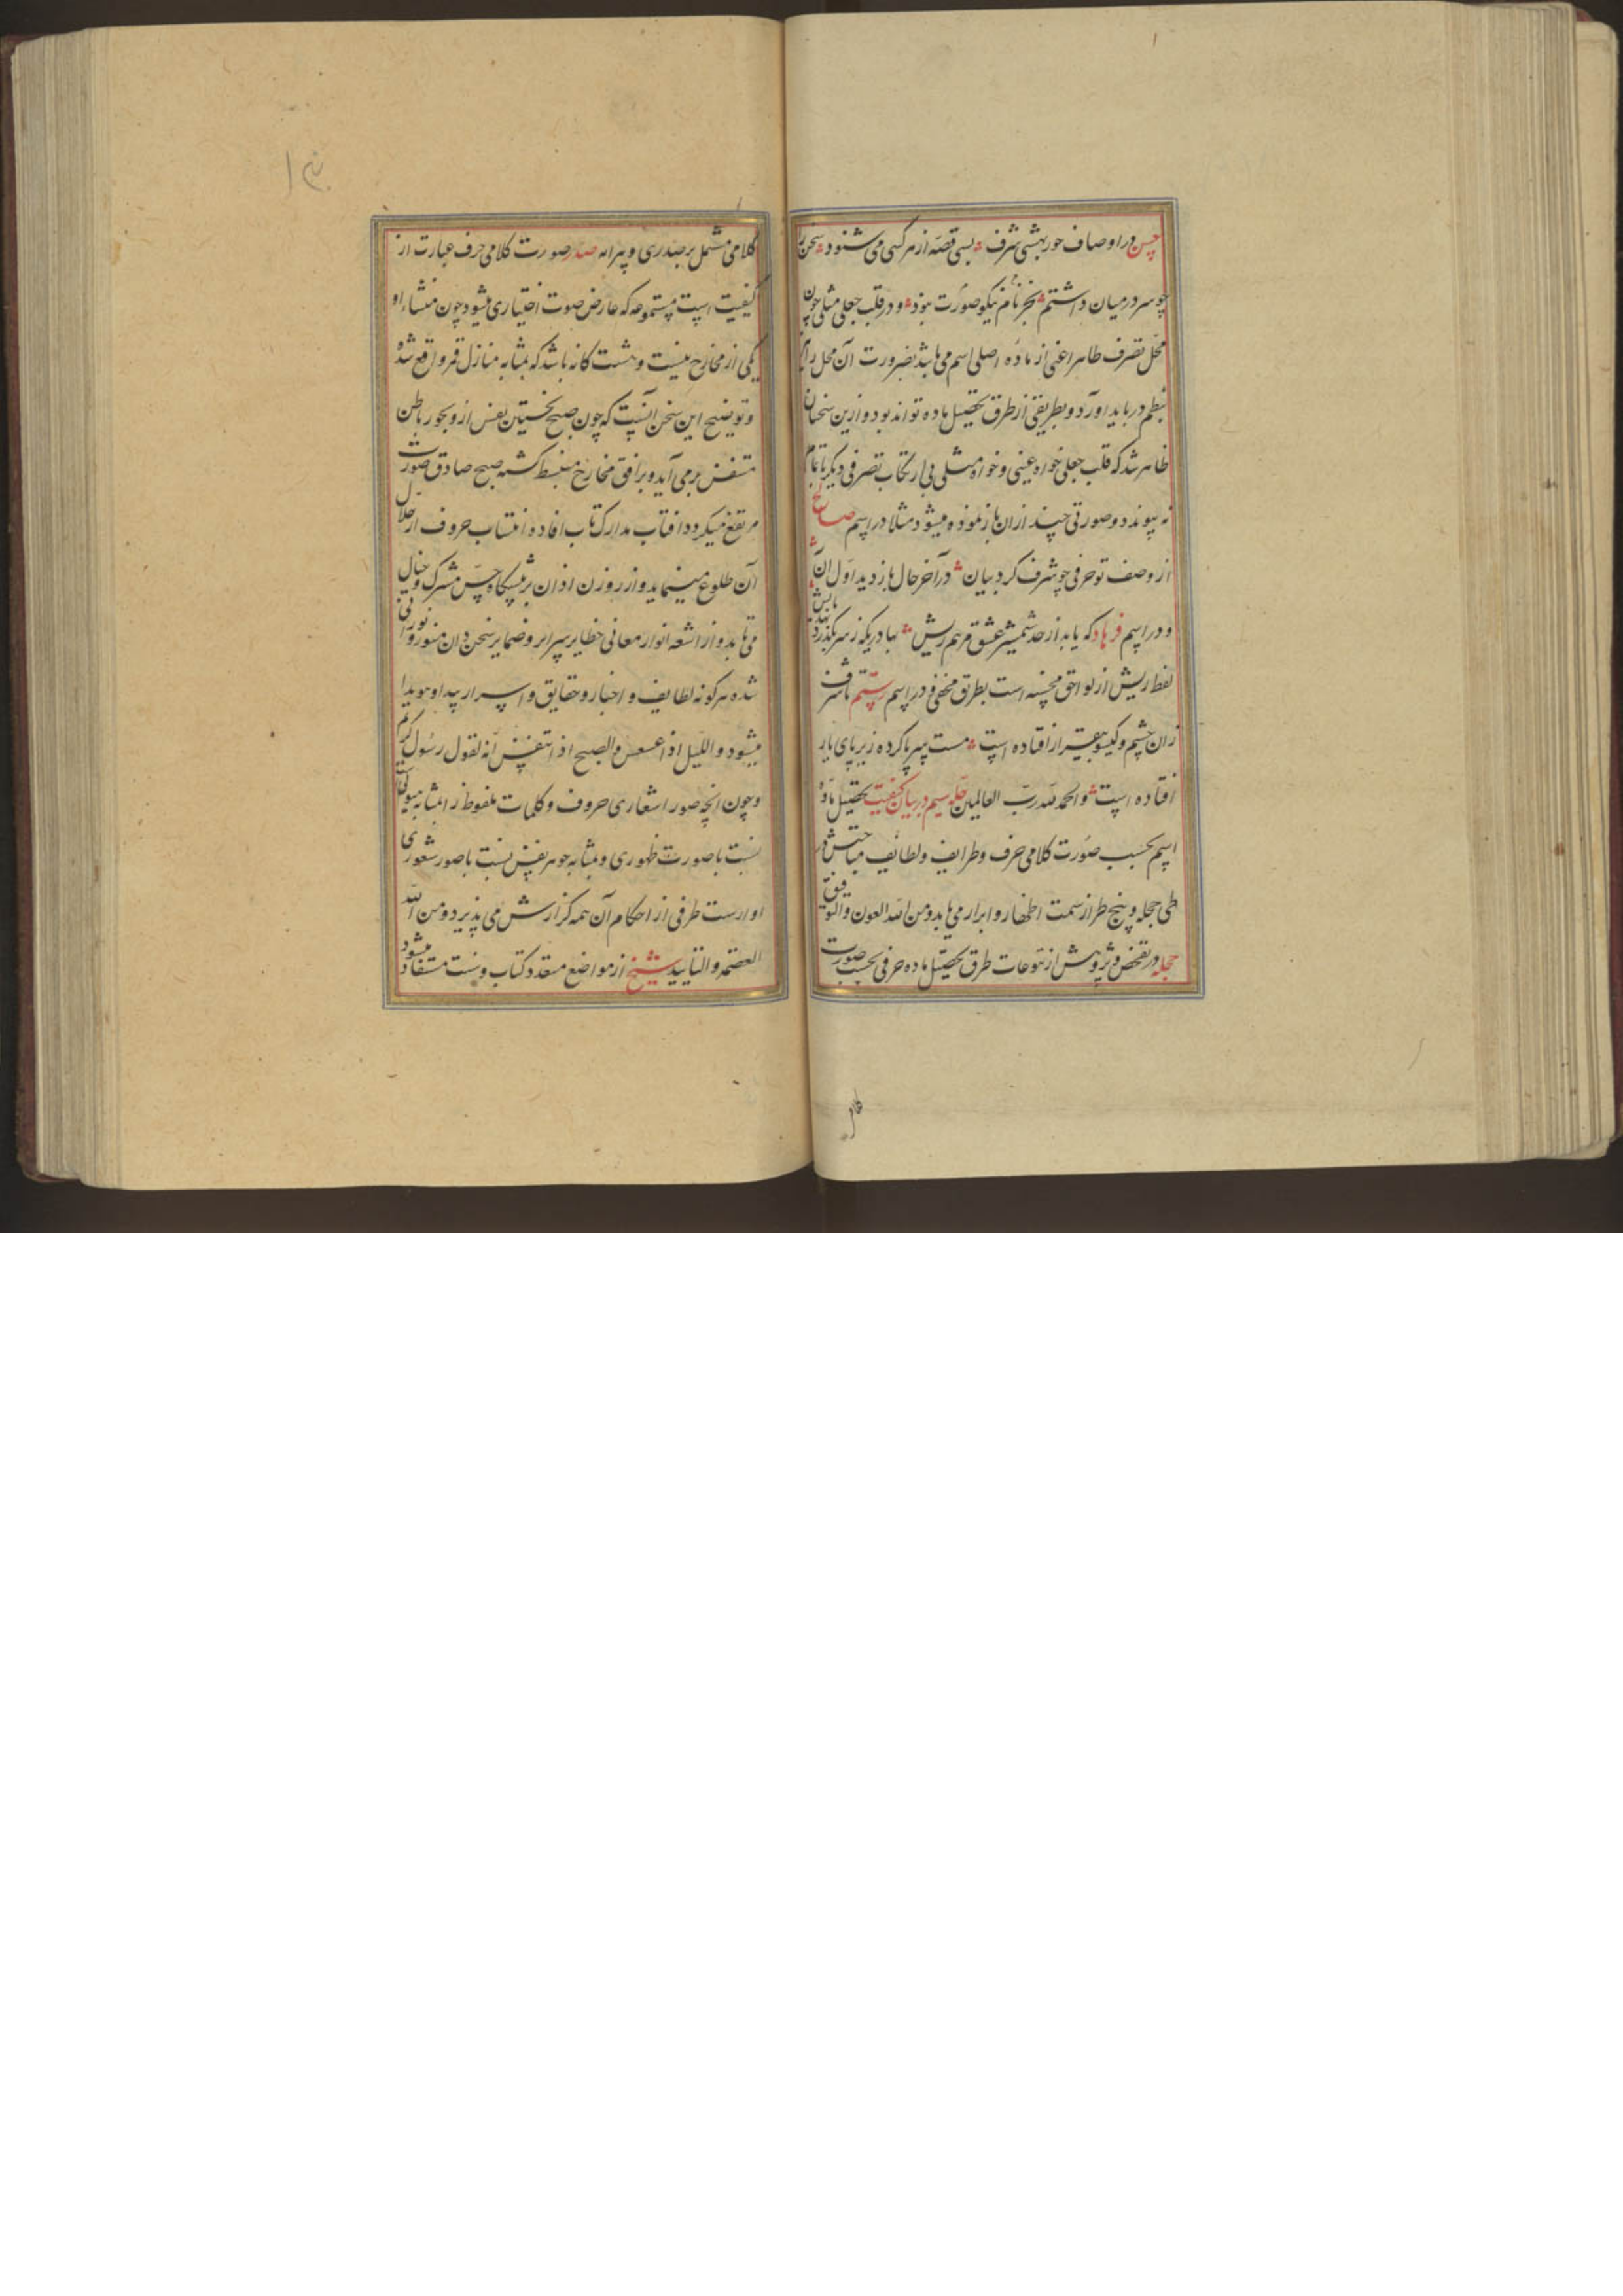 حسن در اوصاف حور بهشتی شرف بسی قصه از هر کسی می شنود سخن
چو سر در میان داشتم بجز نام نیکو صورت نبود و در قلب جعلی مثلی چون
محل تصرف ظاهرا غنی از ماده اصلی اسم می باشد بضرورت آن محل را
بنظم در باید آورد و بطریقی از طرق تحصیل ماده تواند بود و ازین سخنان
ظاهر شد که قلب جعلی خواه عینی و خواه مثلی بی ارتکاب تصرفی دیگر باتمام
نه پیوندد و صورتی چند ازان باز نموده میشود مثلا در اسم صالح
از وصف تو حرفی چو شرف کرد بیان در آخر حال باز دید اول آن
و در اسم فرهاد که یابد از حد شمشیر عشق مرهم ریش بهادریکه ز سر بگذرد
لفظ ریش از لواحق محسنه است بطریق مخفی در اسم رستم تا شرف
زان چشم و گیسو بیقرار افتاده است مست سر پا کرده زیر پای یار
افتاده است والحمد لله رب العالمین حله سیم در بیان کیفیت تحصیل ماده
اسم بحسب صورت کلامی حرف و طرایف و لطائف مباحثش در
طی حجله و پنج طراز سمت اظهار و ابراز می یابد ومن الله العون والتوفیق
حجله در تفحص و پژوهش از تنوعات طرق تحصیل ماده حرفی بحسب صورت
کلامی
کلامی مشتمل بر صدری و پیرایه صدر صورت کلامی حرف عبارت از
کیفیت است مستموعه که عارض صوت اختیاری میشود چون منشاء او
یکی از مخارج بیست و هشت کانه باشد که بمثابه منازل قمر واقع شده
و توضیح این سخن آنست که چون صبح نخستین نفس از دیجور باطن
متنفس بر می آید و بر افق مخارج منبسط کشته صبح صادق صوت
مرتفع میکردد افتاب مدارک تاب افاده انتساب حروف از خلال
آن طلوع مینماید و از روزن اذان بر پیشکاه حس مشترک و خیال
می تابد و از اشعه انوار معانی خطایر سرایر و ضمایر سخن دان منور و نورانی
شده هر کونه لطایف و اخبار و حقایق و اسرار پیدا و هویدا
میشود واللیل اذا عسعس والصبح اذا تنفس انه لقول رسول کریم
و چون انچه صور اشعاری حروف و کلمات ملفوظ را بمثابه هیولیست
نسبت با صورت ظهوری و بمثابه جوهر نفس نسبت با صور شعوری
او ارست طرفی از احکام آن همه کزارش می پذیرد ومن الله
العصمه والتایید شیخ از مواضع متعدد کتاب و سنت مستفاد میشود